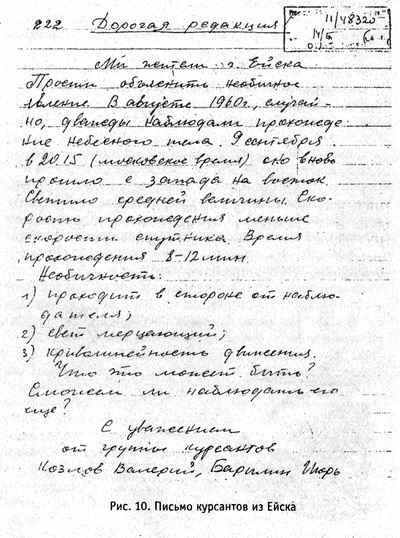 222 Дорогая редакция
11/48320
14/
Мы жители г. Ейска
Просим объяснить необычное
явление. В августе 1960г., случай-
но, дважды наблюдали прохожде-
ние небесного тела. 9 сентября
в 20.15 (московское время) оно вновь
прошло с запада на восток.
Светило средней величины. Ско-
рость прохождения меньше
скорости спутника. Время
прохождения 8-12 мин.
Необычность:
1) проходит в стороне от наблю-
дателя;
2) свет мерцающий;
3) криволинейность движения.
Что это может быть?
Сможем ли наблюдать его
еще?
С уважением
от группы курсантов
Козлов Валерий, Барилин Игорь
Рис. 10. Письмо курсантов из Ейска